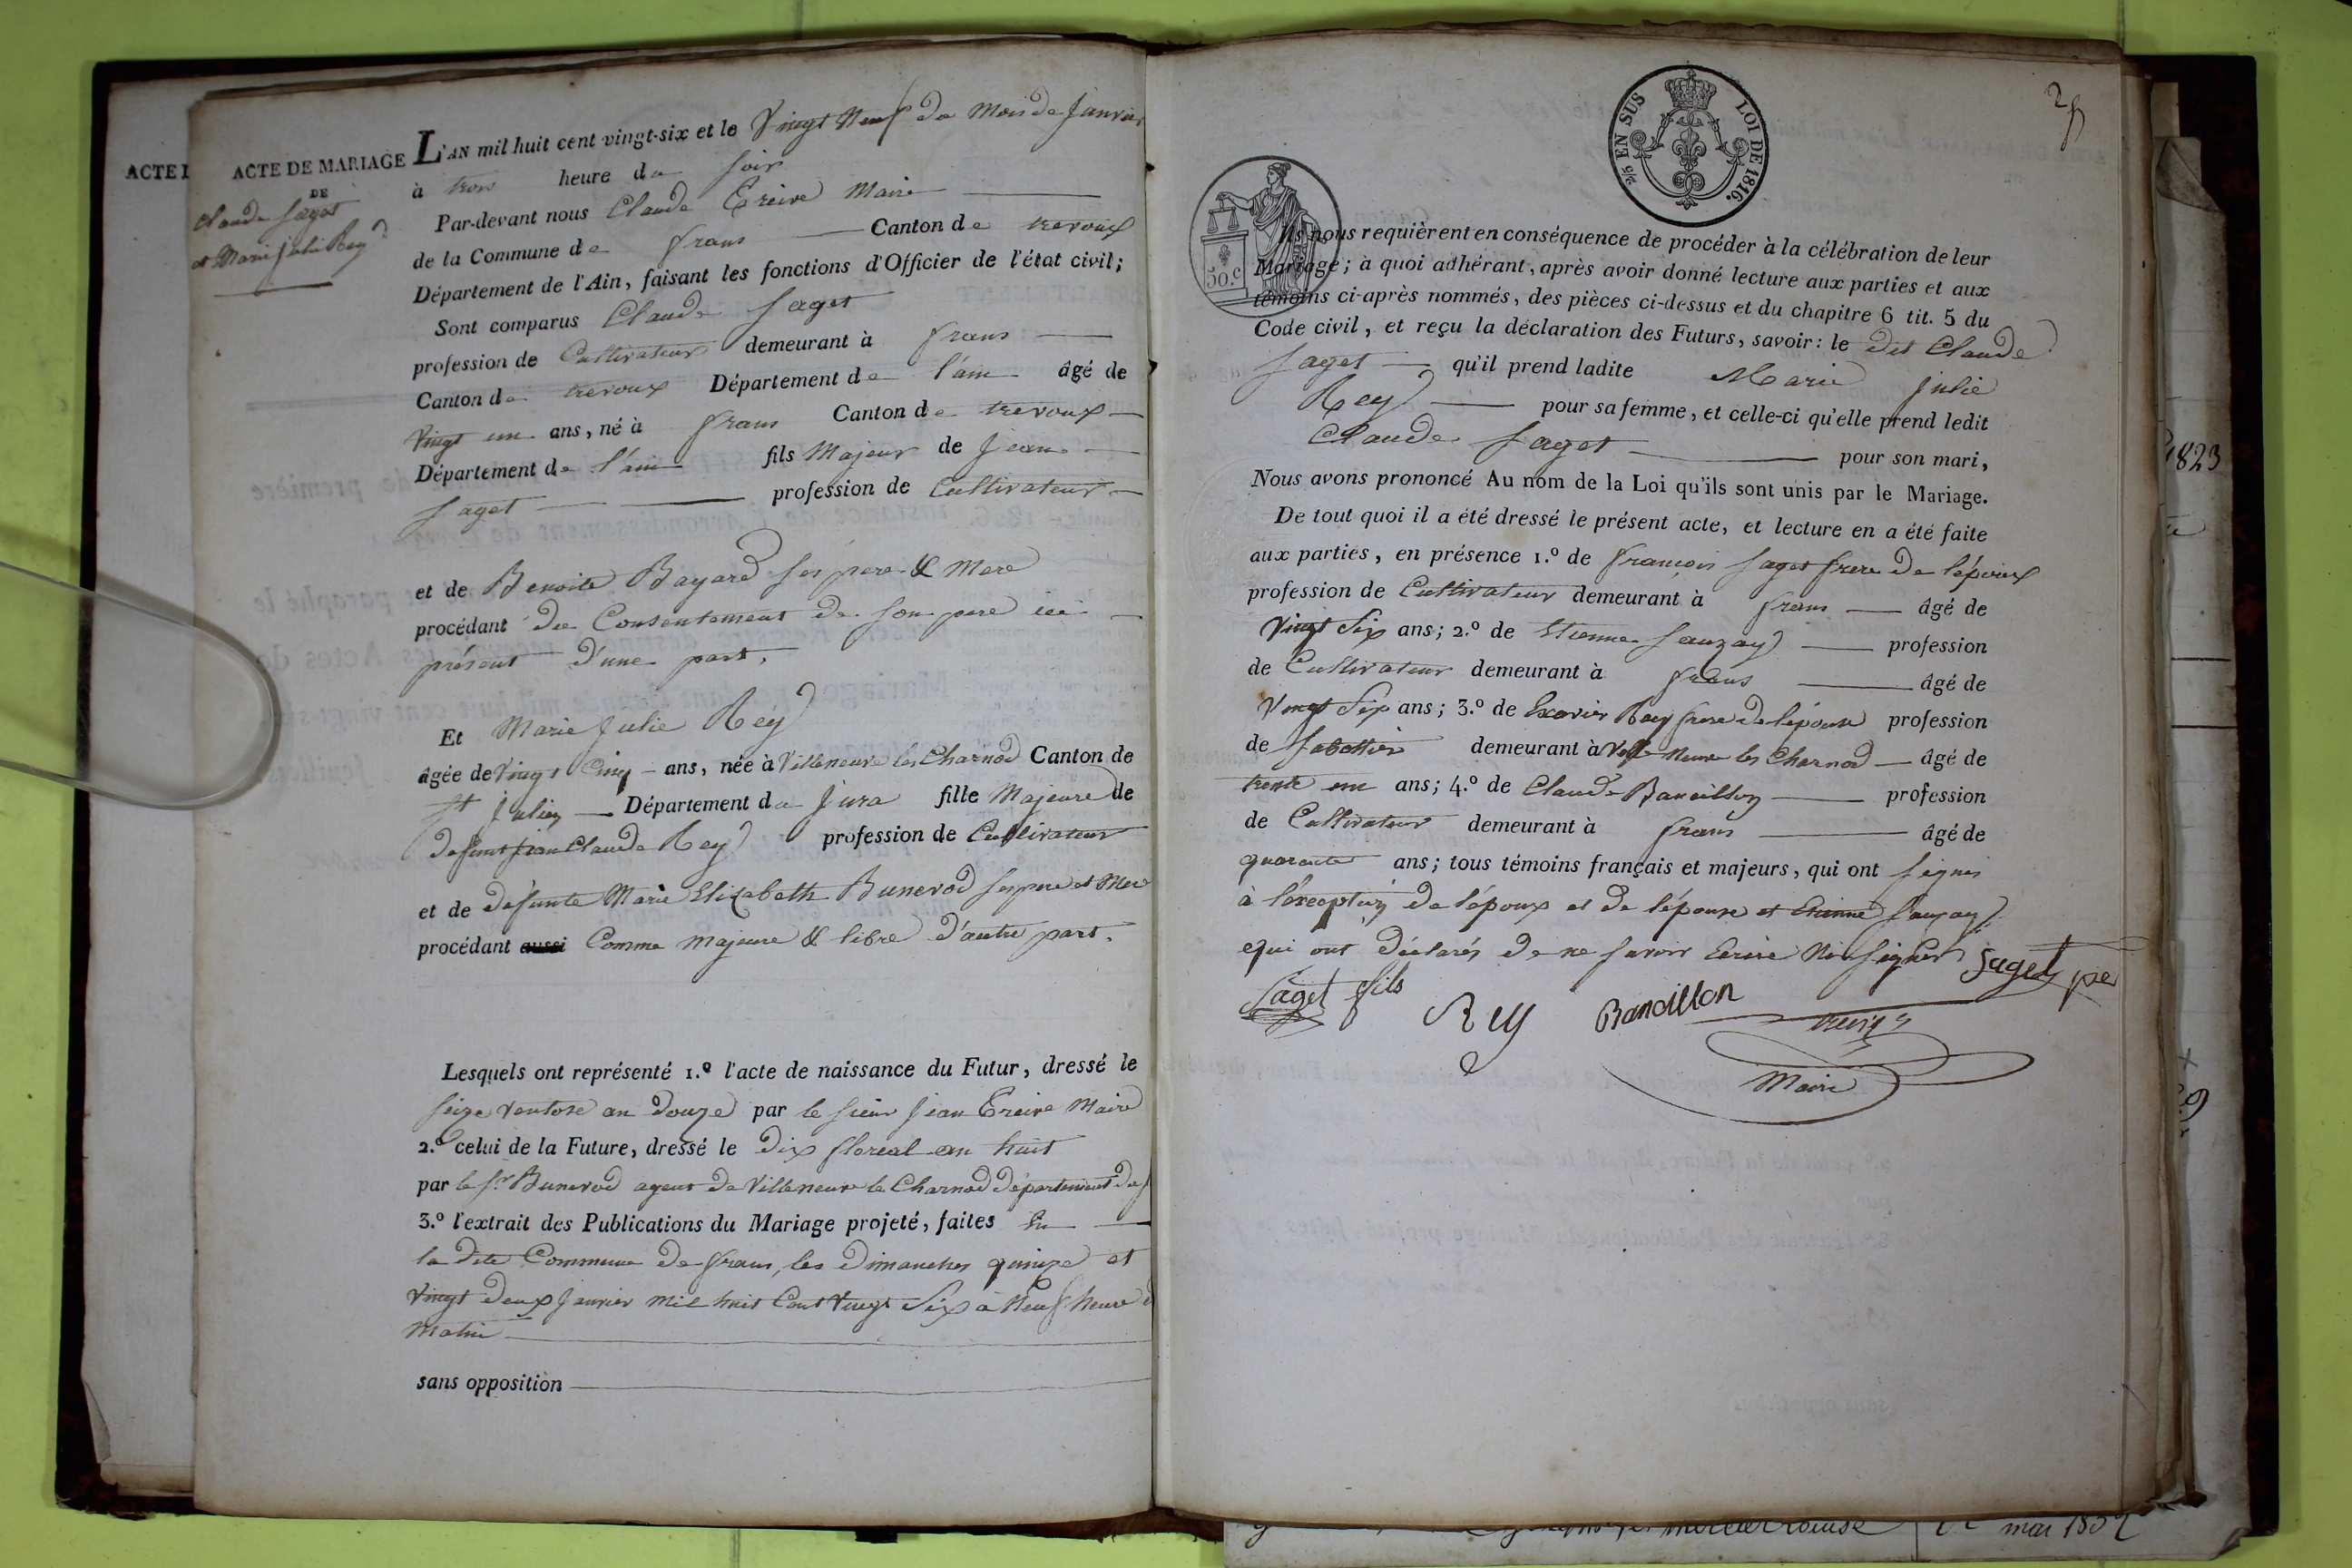 ACTE DE MARIAGE
DE
Claude Saget
et Marie Julie Rey
L'AN mil huit cent vingt-six et le Vingt Neuf du Mois de Janvier
à trois heure du soir
Par-devant nous Claude Treive Maire
de la Commune de frans Canton de trevoux
Département de l'Ain, faisant les fonctions d'Officier de l'état civil;
Sont comparus Claude Saget
profession de Cultivateur demeurant à frans
Canton de trevoux Département de l'ain âgé de
Vingt un ans, né à frans Canton de trevoux
Département de l'ain fils Majeur de Jean
Saget profession de Cultivateur
et de Benoite Bayard ses pere & Mere
procédant du Consentement de son pere ici
présent d'une part.
Et Marie Julie Rey
âgée de Vingt Cinq ans, née à Villeneuve les Charnod Canton de
St Julien Département du Jura fille Majeure de
defunt jean Claude Rey profession de Cultivateur
et de défunte Marie Elizabeth Bunevod ses pere et Mere
procédant aussi Comme majeure & libre d'autre part.
Lesquels ont représenté 1.º l'acte de naissance du Futur, dressé le
seize ventose an douze par le sieur Jean Treive Maire
2.º celui de la Future, dressé le dix floreal an huit
par le Sr Bunevod agent de Villeneuve le Charnod département du
3.º l'extrait des Publications du Mariage projeté, faites en
la dite Commune de frans, les dimanches quinze et
Vingt deux Janvier mil huit Cent Vingt Six à Neuf heure d
matin
sans opposition
ACTE
2/5 EN SUS LOI DE 1816.
50.c
Ils nous requièrent en conséquence de procéder à la célébration de leur
Mariage; à quoi adhérant, après avoir donné lecture aux parties et aux
témoins ci-après nommés, des pièces ci-dessus et du chapitre 6 tit. 5 du
Code civil, et reçu la déclaration des Futurs, savoir: le dit Claude
Saget qu'il prend ladite Marie Julie
Rey pour sa femme, et celle-ci qu'elle prend ledit
Claude Saget pour son mari,
Nous avons prononcé Au nom de la Loi qu'ils sont unis par le Mariage.
De tout quoi il a été dressé le présent acte, et lecture en a été faite
aux parties, en présence 1.º de françois Saget frere de l'époux
profession de Cultivateur demeurant à frans âgé de
Vingt Six ans; 2.º de Etienne Sauzay profession
de Cultivateur demeurant à frans âgé de
Vingt Six ans; 3.º de Exavier Rey frere de l'épouse profession
de Sabottier demeurant à Ville Neuve les Charnod âgé de
trente un ans; 4.º de Claude Bancillon profession
de Cultivateur demeurant à frans âgé de
quarante ans; tous témoins français et majeurs, qui ont signés
à l'éxception de l'époux et de l'épouse et Etienne Sauzay
qui ont déclarés de ne savoir Ecrire Ni Signer Saget pe
Saget fils Rey Bancillon
treive
Maire
1823
mai 1832